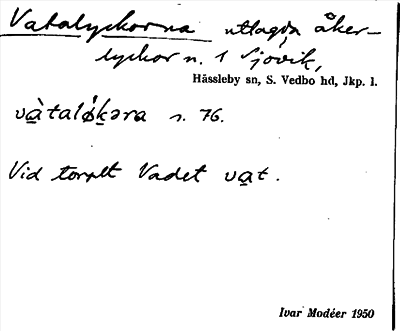 Vatalyckorna utlagda åker-
lyckor n. 1 Sjövik,
Hässleby sn, S. Vedbo hd, Jkp. l.
s. 76.
Vid torpet Vadet vat.
Ivar Modéer 1950